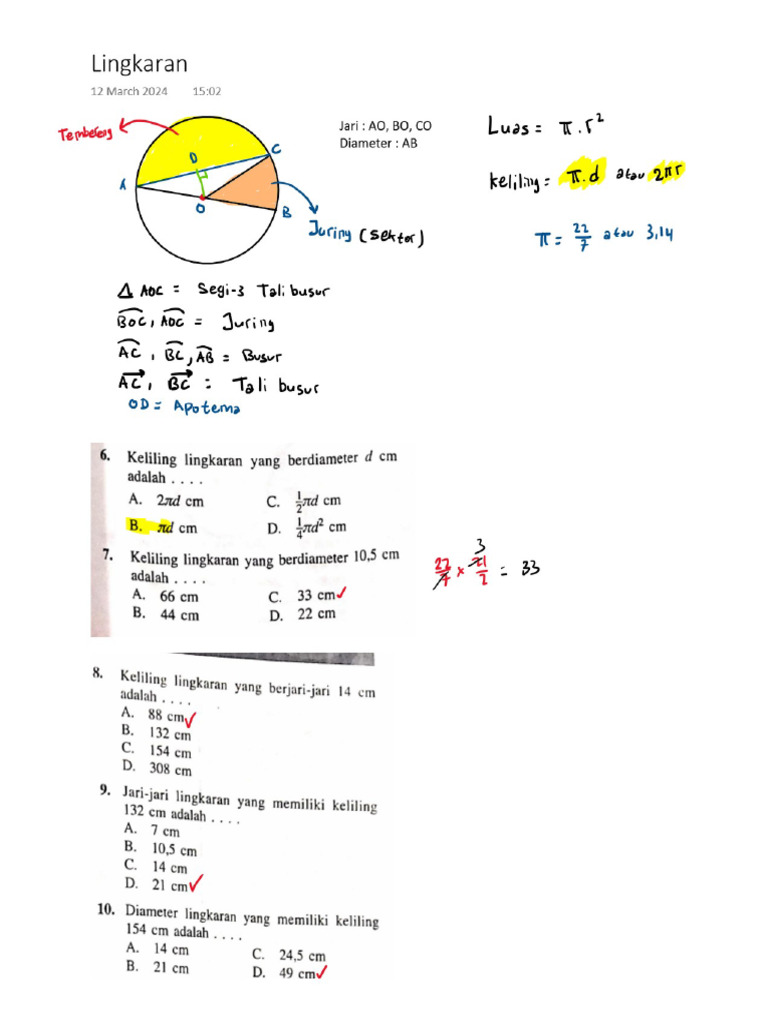 Lingkaran
12 March 2024 15:02
Tembereng
A
D
C
O
B
Juring (Sektor)
Jari : AO, BO, CO
Diameter : AB
Luas = π.r²
keliling = π.d atau 2πr
π = 22/7 atau 3,14
Δ AOC = Segi-3 Tali busur
BOC, AOC = Juring
AC, BC, AB = Busur
AC, BC = Tali busur
OD = Apotema
6. Keliling lingkaran yang berdiameter d cm
adalah . . . .
A. 2πd cm C. 1/2 πd cm
B. πd cm D. 1/4 πd² cm
7. Keliling lingkaran yang berdiameter 10,5 cm
adalah . . . .
A. 66 cm C. 33 cm ✓
B. 44 cm D. 22 cm
3
22/7 × 21/2 = 33
8. Keliling lingkaran yang berjari-jari 14 cm
adalah . . . .
A. 88 cm ✓
B. 132 cm
C. 154 cm
D. 308 cm
9. Jari-jari lingkaran yang memiliki keliling
132 cm adalah . . . .
A. 7 cm
B. 10,5 cm
C. 14 cm
D. 21 cm ✓
10. Diameter lingkaran yang memiliki keliling
154 cm adalah . . . .
A. 14 cm C. 24,5 cm
B. 21 cm D. 49 cm ✓